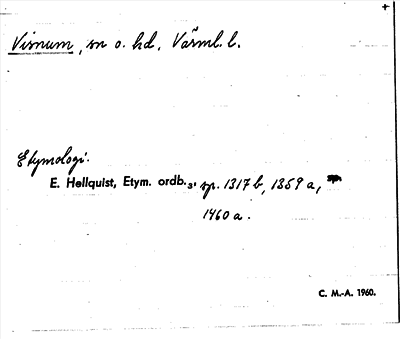 +
Visnum, sn o. hd, Värml. l.
Etymologi.
E. Hellquist, Etym. ordb.3, sp. 1317 b, 1359 a,
1460 a.
C. M.-A. 1960.